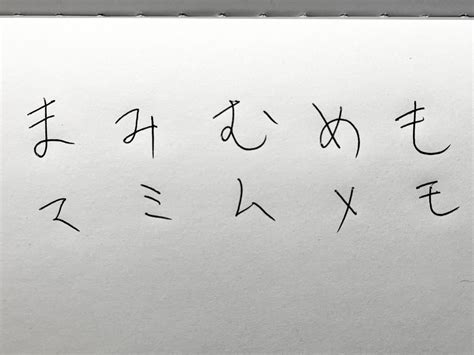 ま み む め も
マ ミ ム メ モ